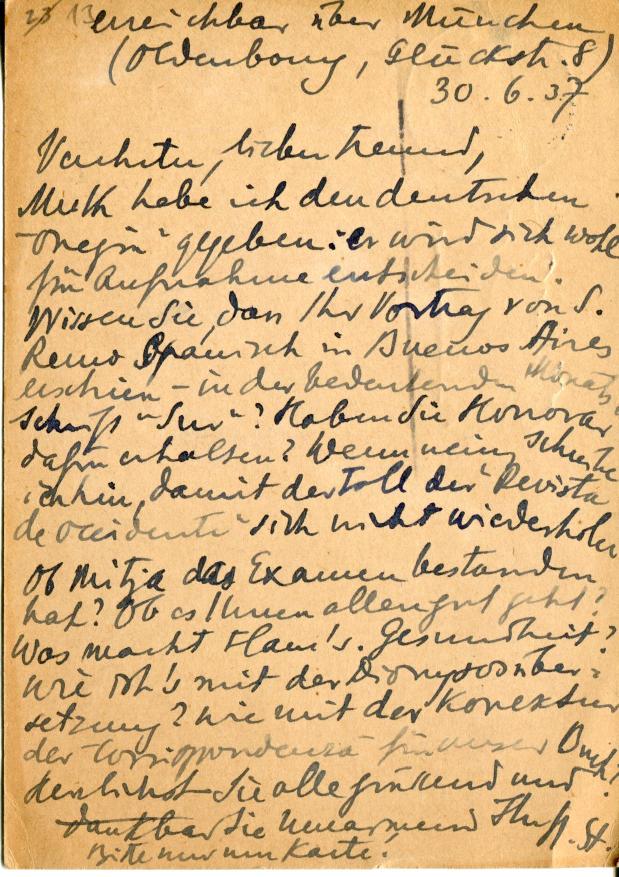 erreichbar über München
(Oldenbourg, Glückstr. 8)
30.6.37
Verehrter, lieber Freund,
Muth habe ich den deutschen
"Onegin" gegeben: er wird sich wohl
für Aufnahme entscheiden.
Wissen Sie, dass Ihr Vortrag von S.
Remo Spanisch in Buenos Aires
erschien – in der bedeutenden Monats
schrift "Sur"? Haben Sie Honorar
dafür erhalten? Wenn nein, schreibe
ich hin, damit der Fall der "Revista
de Occidente" sich nicht wiederhole.
Ob Mitja das Examen bestanden
hat? Ob es Ihnen allen gut geht?
Was macht Flam's. Gesundheit?
Wie ist's mit der Dionysosüber-
setzung? Wie mit der Korrektur
der Corrispondenza für unser Buch?
Herzlichst Sie alle grüssend und
dankbar Sie umarmend
Bitte nur eine Karte!